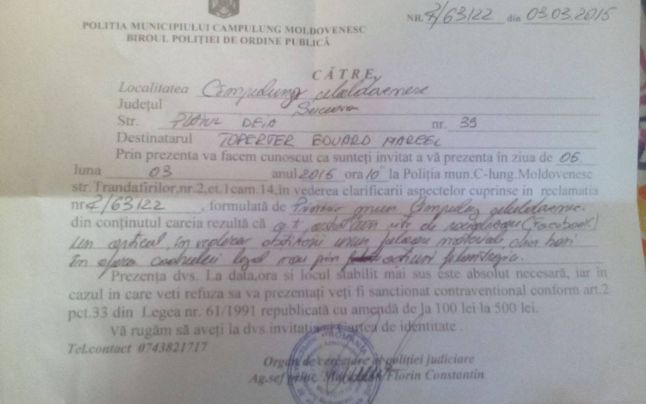 POLITIA MUNICIPIULUI CAMPULUNG MOLDOVENESC
BIROUL POLITIEI DE ORDINE PUBLICĂ
NR. 2/63122 din 03.03.2015
CĂTRE,
Localitatea Cimpulung Moldovenesc
Județul Suceava
Str. Plaiul DEIA nr. 39
Destinatarul TOPERTER EDUARD MARCEL
Prin prezenta va facem cunoscut ca sunteți invitat a vă prezenta în ziua de 06
luna 03 anul 2015 ora 10 la Poliția mun.C-lung.Moldovenesc
str.Trandafirilor,nr.2,et.1cam.14,în vederea clarificarii aspectelor cuprinse in reclamatia
nr 2/63122, formulată de Primar mun Cimpulung Moldovenesc
din conținutul careia rezultă că ați postat un site de socializare (Facebook)
un articol în vederea obtinerii unui folos material, din bani
în afara cadrului legal sau prin actiuni filantropice.
Prezența dvs. La data,ora si locul stabilit mai sus este absolut necesară, iar in
cazul in care veti refuza sa va prezentați veți fi sanctionat contraventional conform art.2
pct.33 din Legea nr. 61/1991 republicată cu amendă de la 100 lei la 500 lei.
Vă rugăm să aveți la dvs.invitatia si cartea de identitate .
Tel.contact 0743821717
Organ de cercetare al poliției judiciare
Ag.șef Florin Constantin
ROMANIA